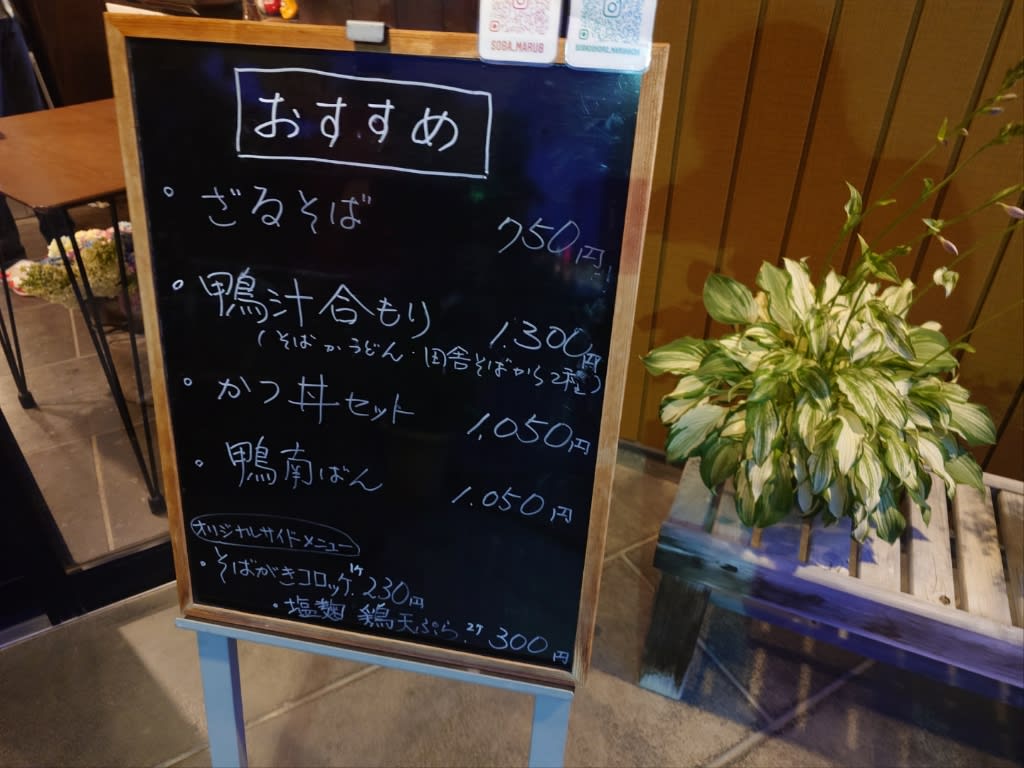 SOBA_MARU8
おすすめ
・ざるそば 750円
・鴨汁合もり 1.300円
(そばかうどん・田舎そばから2種)
・かつ丼セット 1.050円
・鴨南ばん 1.050円
オリジナルサイドメニュー
・そばがきコロッケ 1ケ 230円
・塩麹 鶏天ぷら 2ケ 300円